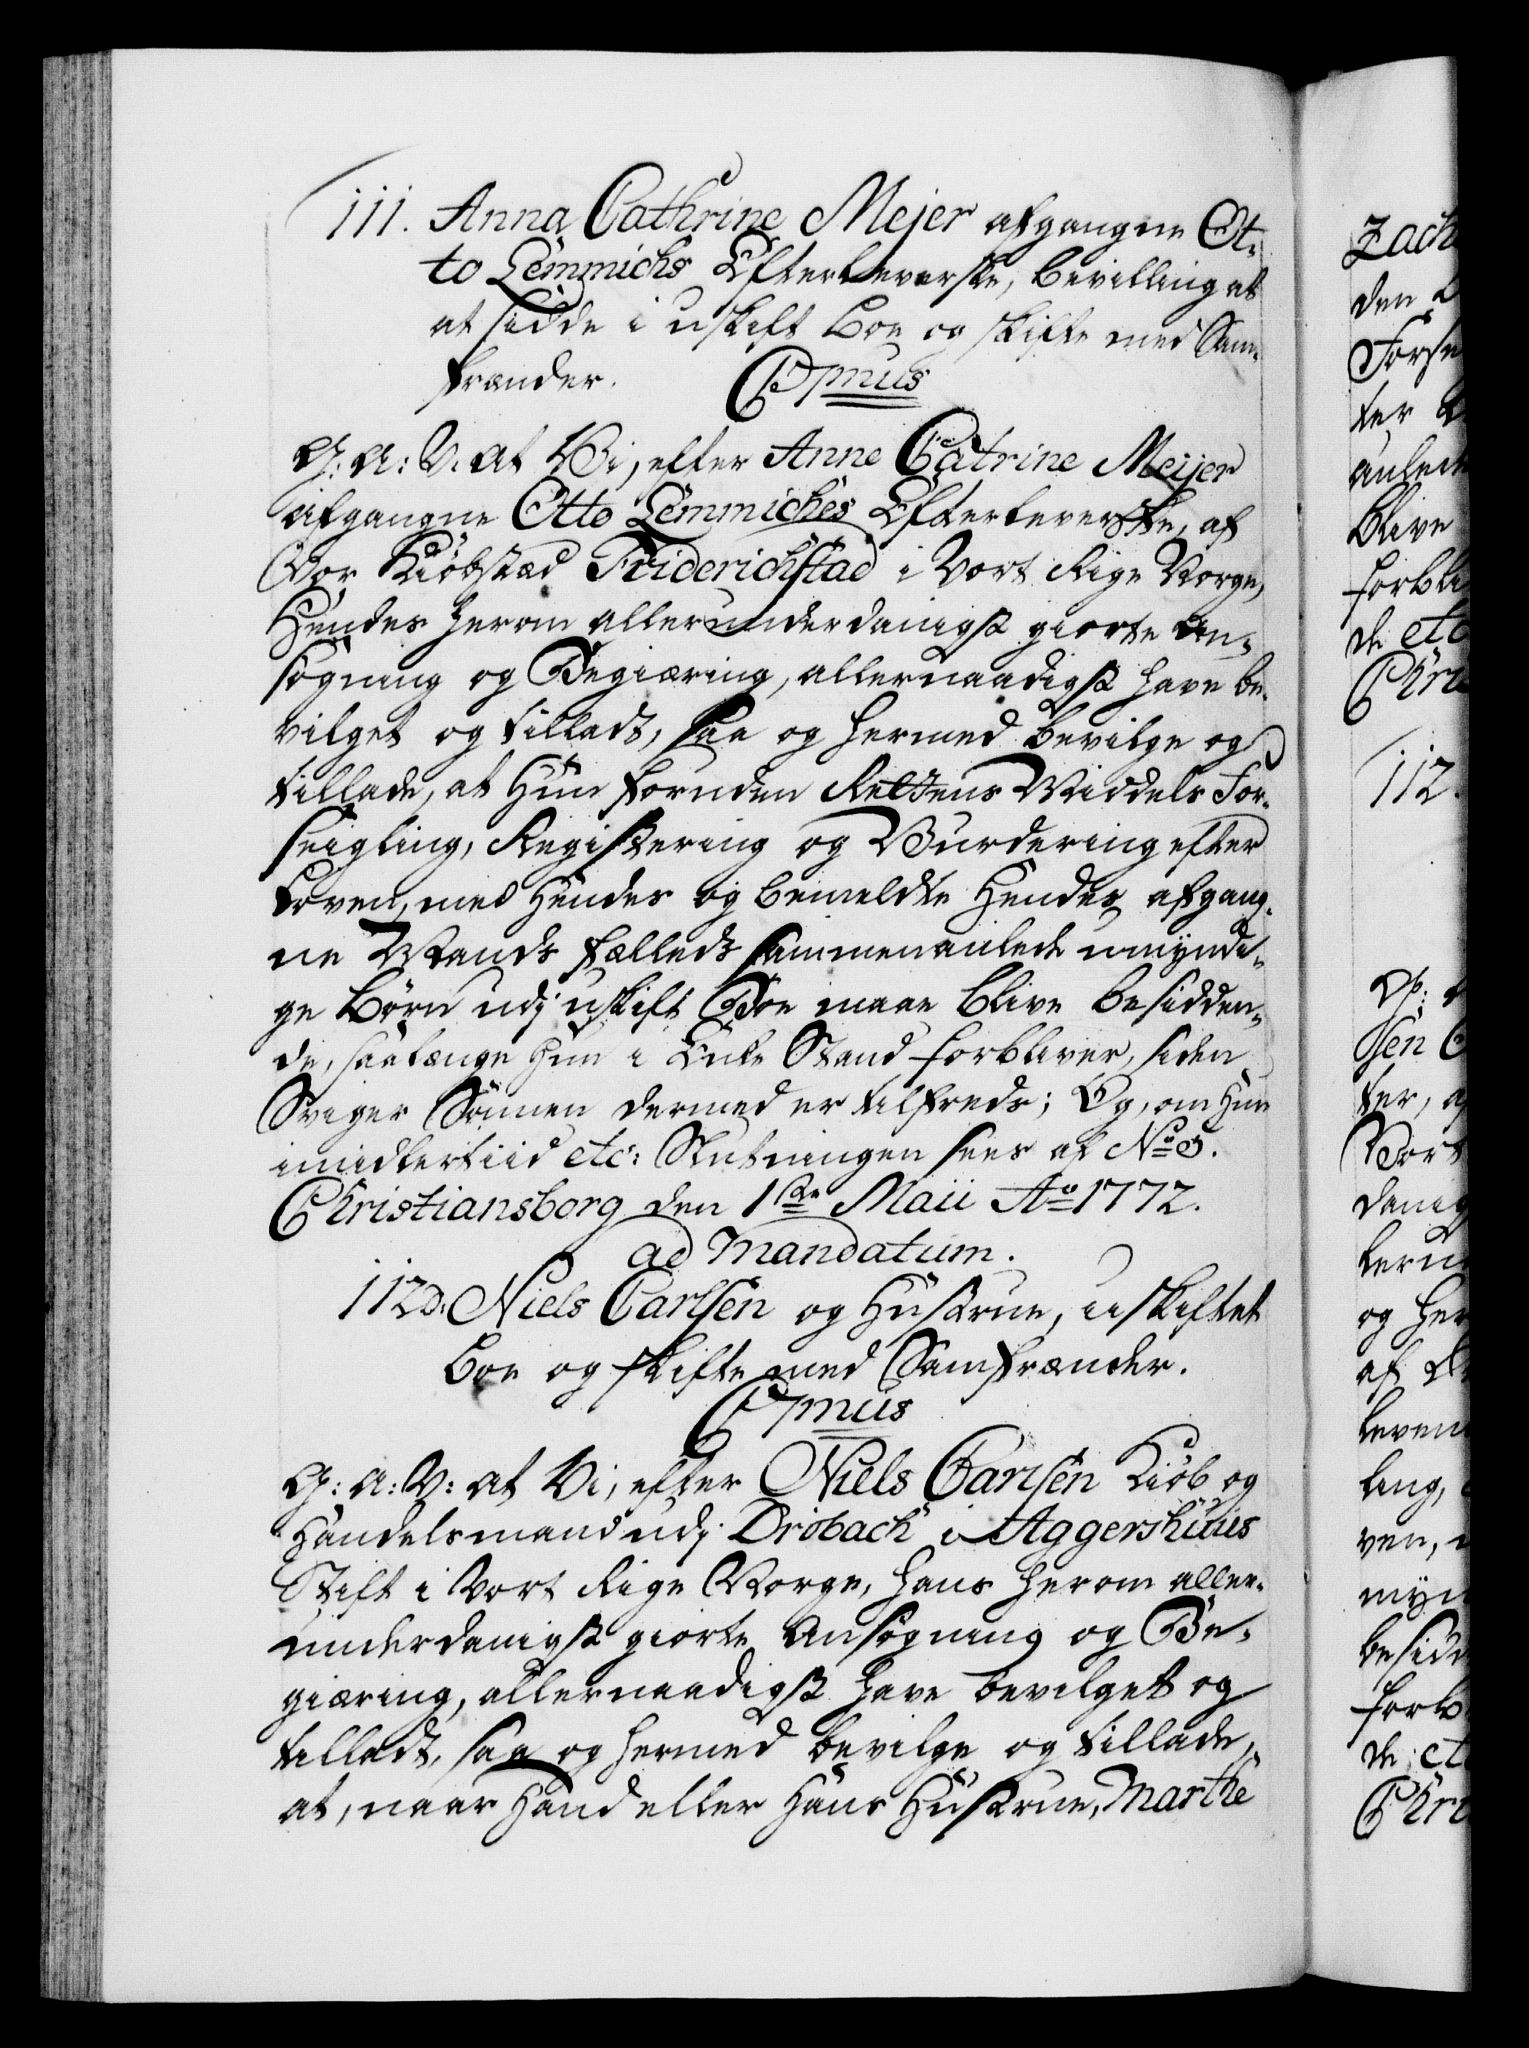 111. Anna Cathrine Mejer afgangne Ot-
to Lemmichs Efterleverske, bevilling at
at sidde i uskift Boe og skifte med Sam-
frænder.
Cmus
G: A: V: at Vi, efter Anne Catrine Meijer
afgangne Otto Lemmiches Efterleverske, af
Vor Kiøbstæd Friderichstad i Vort Rige Norge,
Hendes herom allerunderdanigst giorte An-
søgning og Begiæring, allernaadigst have be-
vilget og tilladt, saa og hermed bevilge og
tillade, at Hun foruden Rettens Middels For-
seigling, Registering og Vurdering efter
Loven, med Hendes og bemeldte Hendes afgang-
ne Mands fælleds sammenavlede umyndi-
ge Børn udj uskift Boe maae blive besidden-
de, saalænge hun i Enke Stand forbliver, siden
Sviger Sønnen dermed er tilfreds; Og, om Hun
imidlertiid etc: Slutningen sees af No 3.
Christiansborg den 1ste Maii Ao 1772.
ad Mandatum.
112d: Niels Carlsen og Hustrue, uskiftet
Boe og skifte med Samfrænder.
Cmus
G: A: V: at Vi, efter Niels Carlsen Kiøb og
Handelsmand udj Drøbach i Aggershuus
Stift i Vort Rige Norge, hans herom aller-
underdanigst giorte Ansøgning og Be-
giæring, allernaadigst have bevilget og
tilladt, saa og hermed bevilge og tillade,
at, naar Hand eller Hans Hustrue, Marthe
Zach
den
ter
blive
forbli
de etc
Chri
112.
sen
ter, a
Vort
danig
og her
af
leven
ling,
ven,
myn
besidd
forb
de etc
Chri